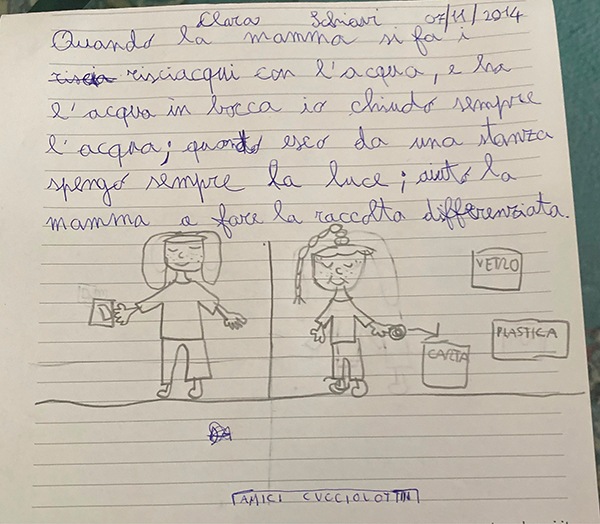 Clara Schiavi 07/11/2014
Quando la mamma si fa i
riscia risciacqui con l'acqua, e ha
l'acqua in bocca io chiudo sempre
l'acqua; quando esco da una stanza
spengo sempre la luce; aiuto la
mamma a fare la raccolta differenziata.
VETRO
PLASTICA
CARTA
AMICI CUCCIOLOTTIN